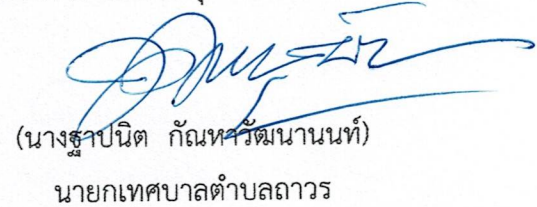 (นางฐาปนิต กัณหาวัฒนานนท์)
นายกเทศบาลตำบลถาวร